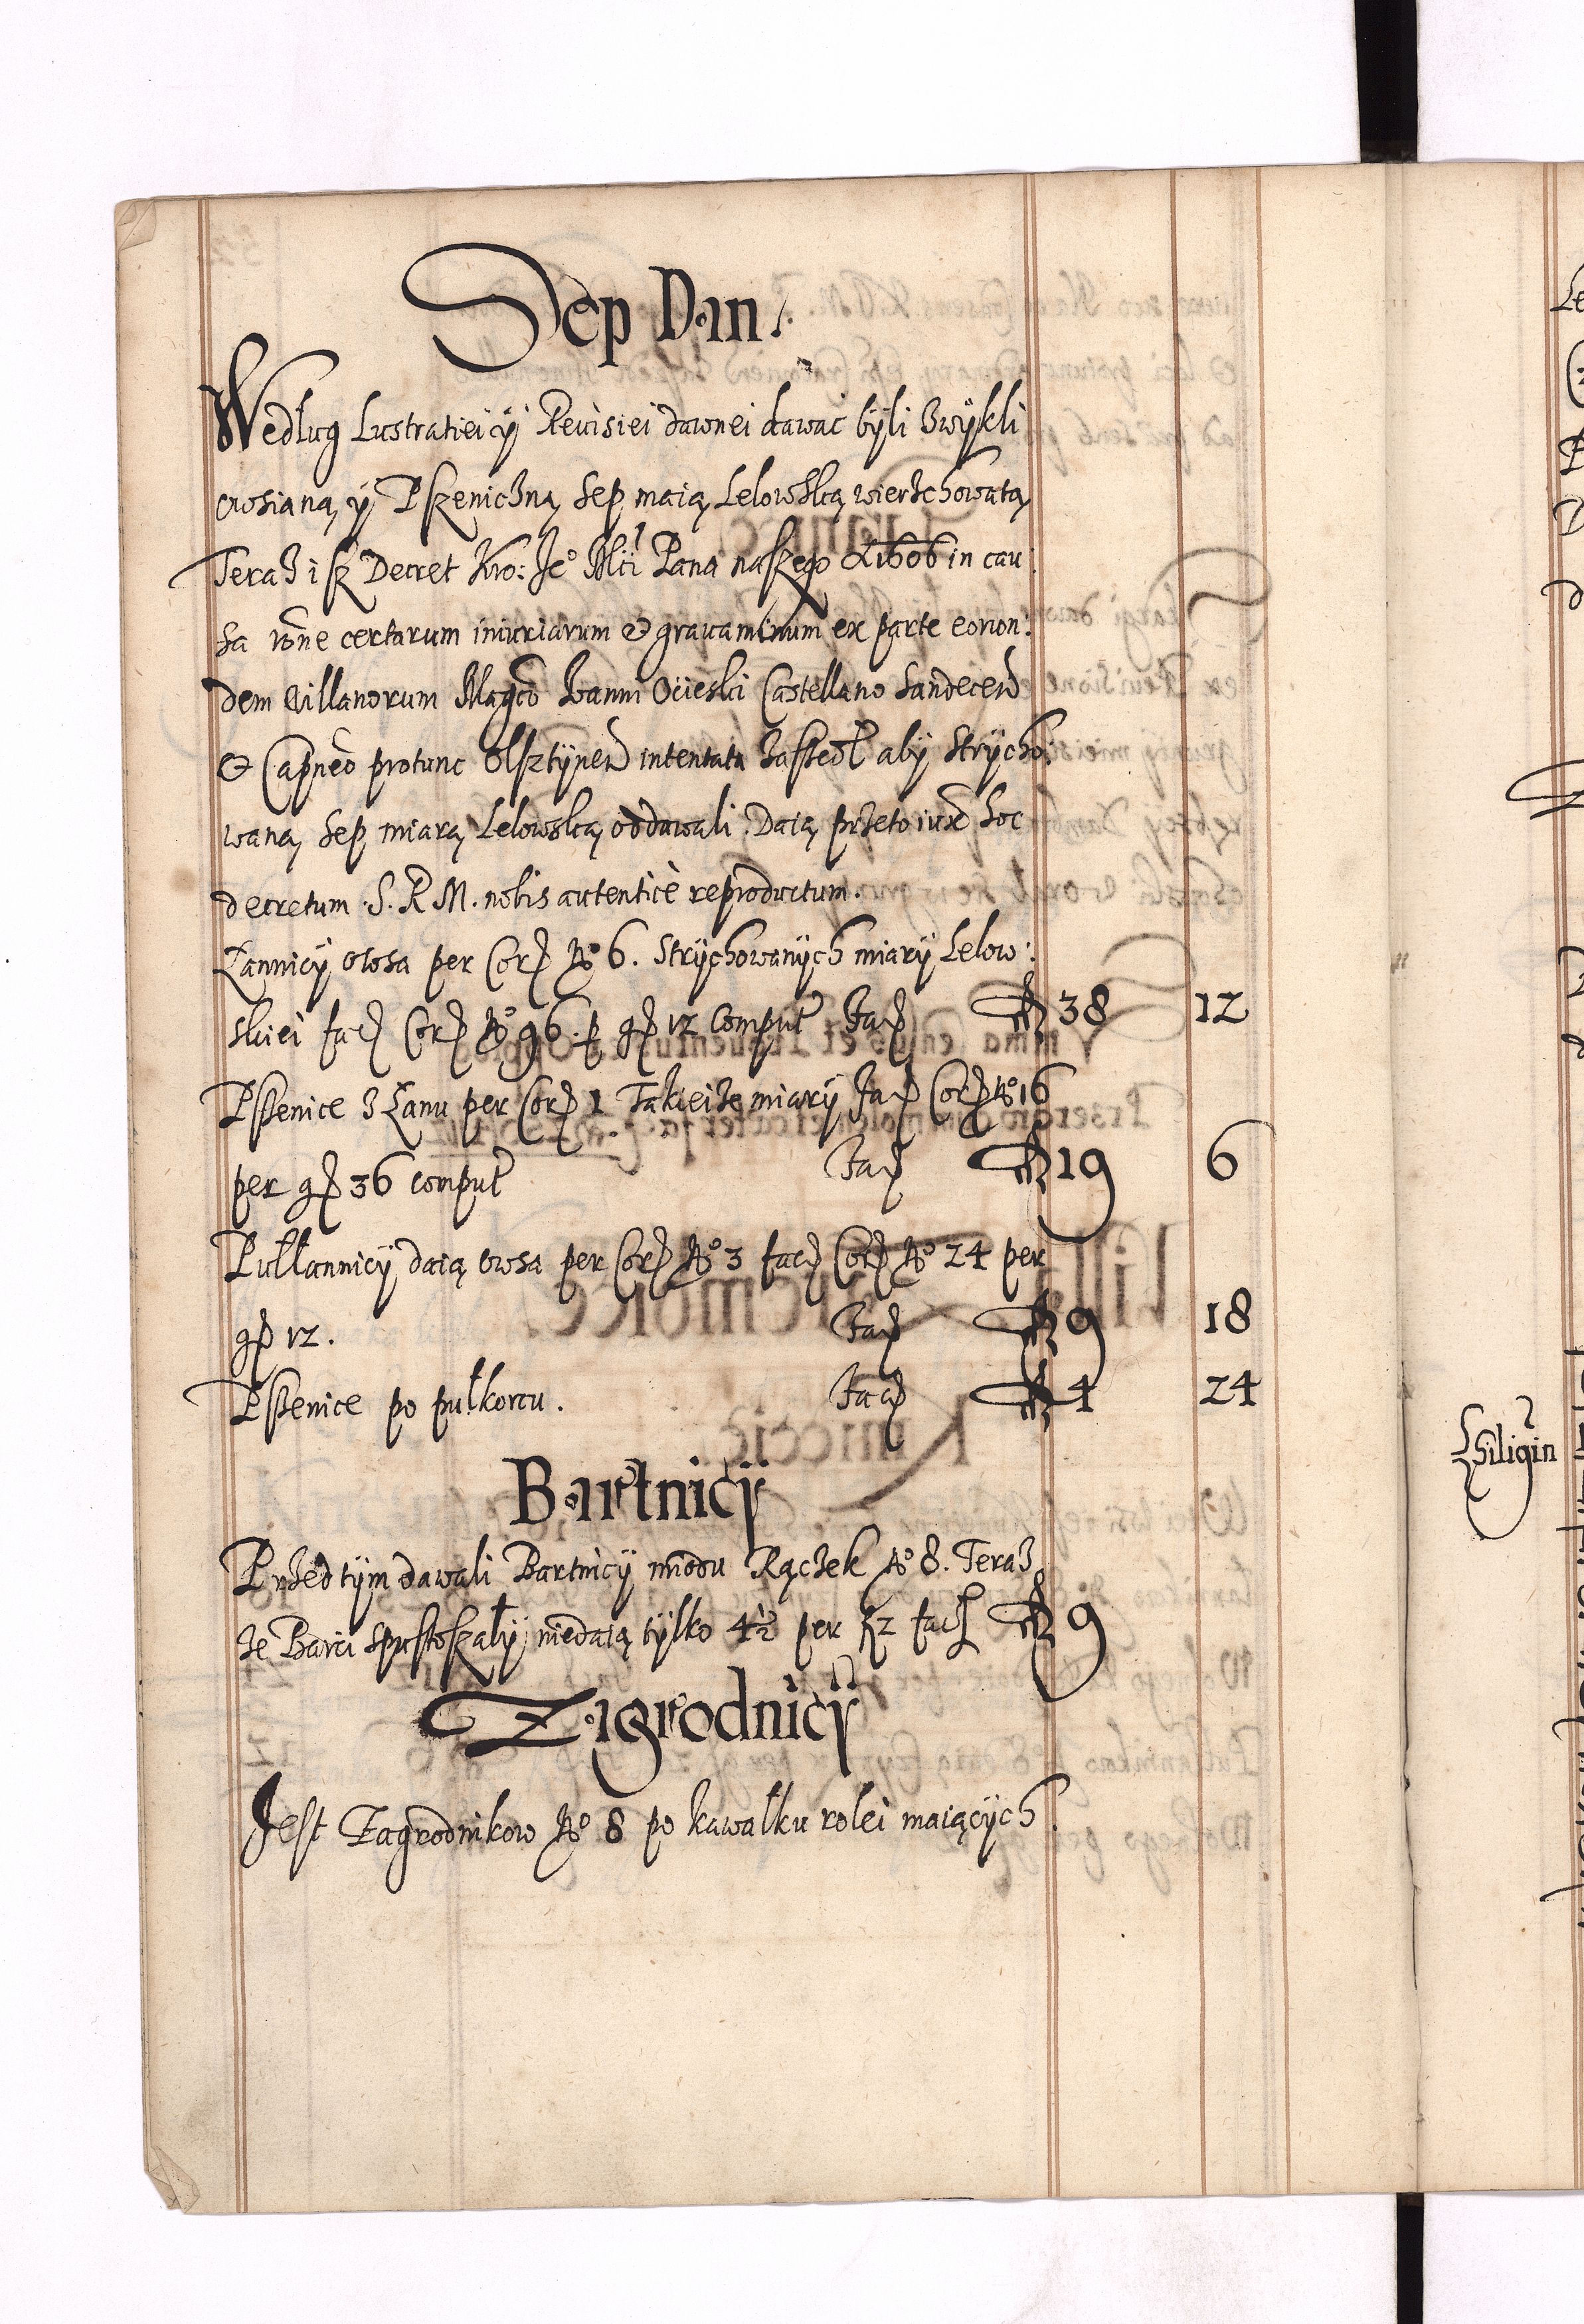 Sep Dan.
Według Lustratiei ÿ Reuisiei dawnei dawać bÿli Zwÿkli
owsianą ÿ Pszenicżną Sep miarą Lelowską wierzchowatą
Teraz isz Decret Kro: Je° Mći Pana naszego A 1606 in cau:
sa rõne certarum iniuriarum & grauaminum ex parte eorun:
dem Villanorum Magco Joanni Ocieski Castellano Sandecen
& Capneo protunc Olsztÿnen intentata Zaszedł abÿ Strÿcho:
waną Sep miarą Lelowską oddawali. Daią przeto iuxa hoc
decretum S. R M. nobis autenticè reproductum.
Łannicÿ owsa per Cor N° 6. Strÿchowanÿch miarÿ Lelow:
skiei fac Cor N° 96. p g 12 Comput Fac f 38 12
Pszenice z Łanu per Cor 1 Takieiże miarÿ Fac Cor N° 16
per g 36 comput Fac f 19 6
Pułłannicÿ daią owsa per Cor N° 3 fac Cor N° 24 per
g 12. Fac f 9 18
Pszenice po pułkorcu. Fac f 4 24
Bartnicÿ
Przed tÿm dawali Bartnicÿ miodu Rączek N° 8. Teraz
że Barci spustoszałÿ niedaią tÿlko 4½ per f 2 fac f 9
Zagrodnicÿ
Jest Zagrodnikow N° 8 po kawałku rolei maiącÿch.
Siligin